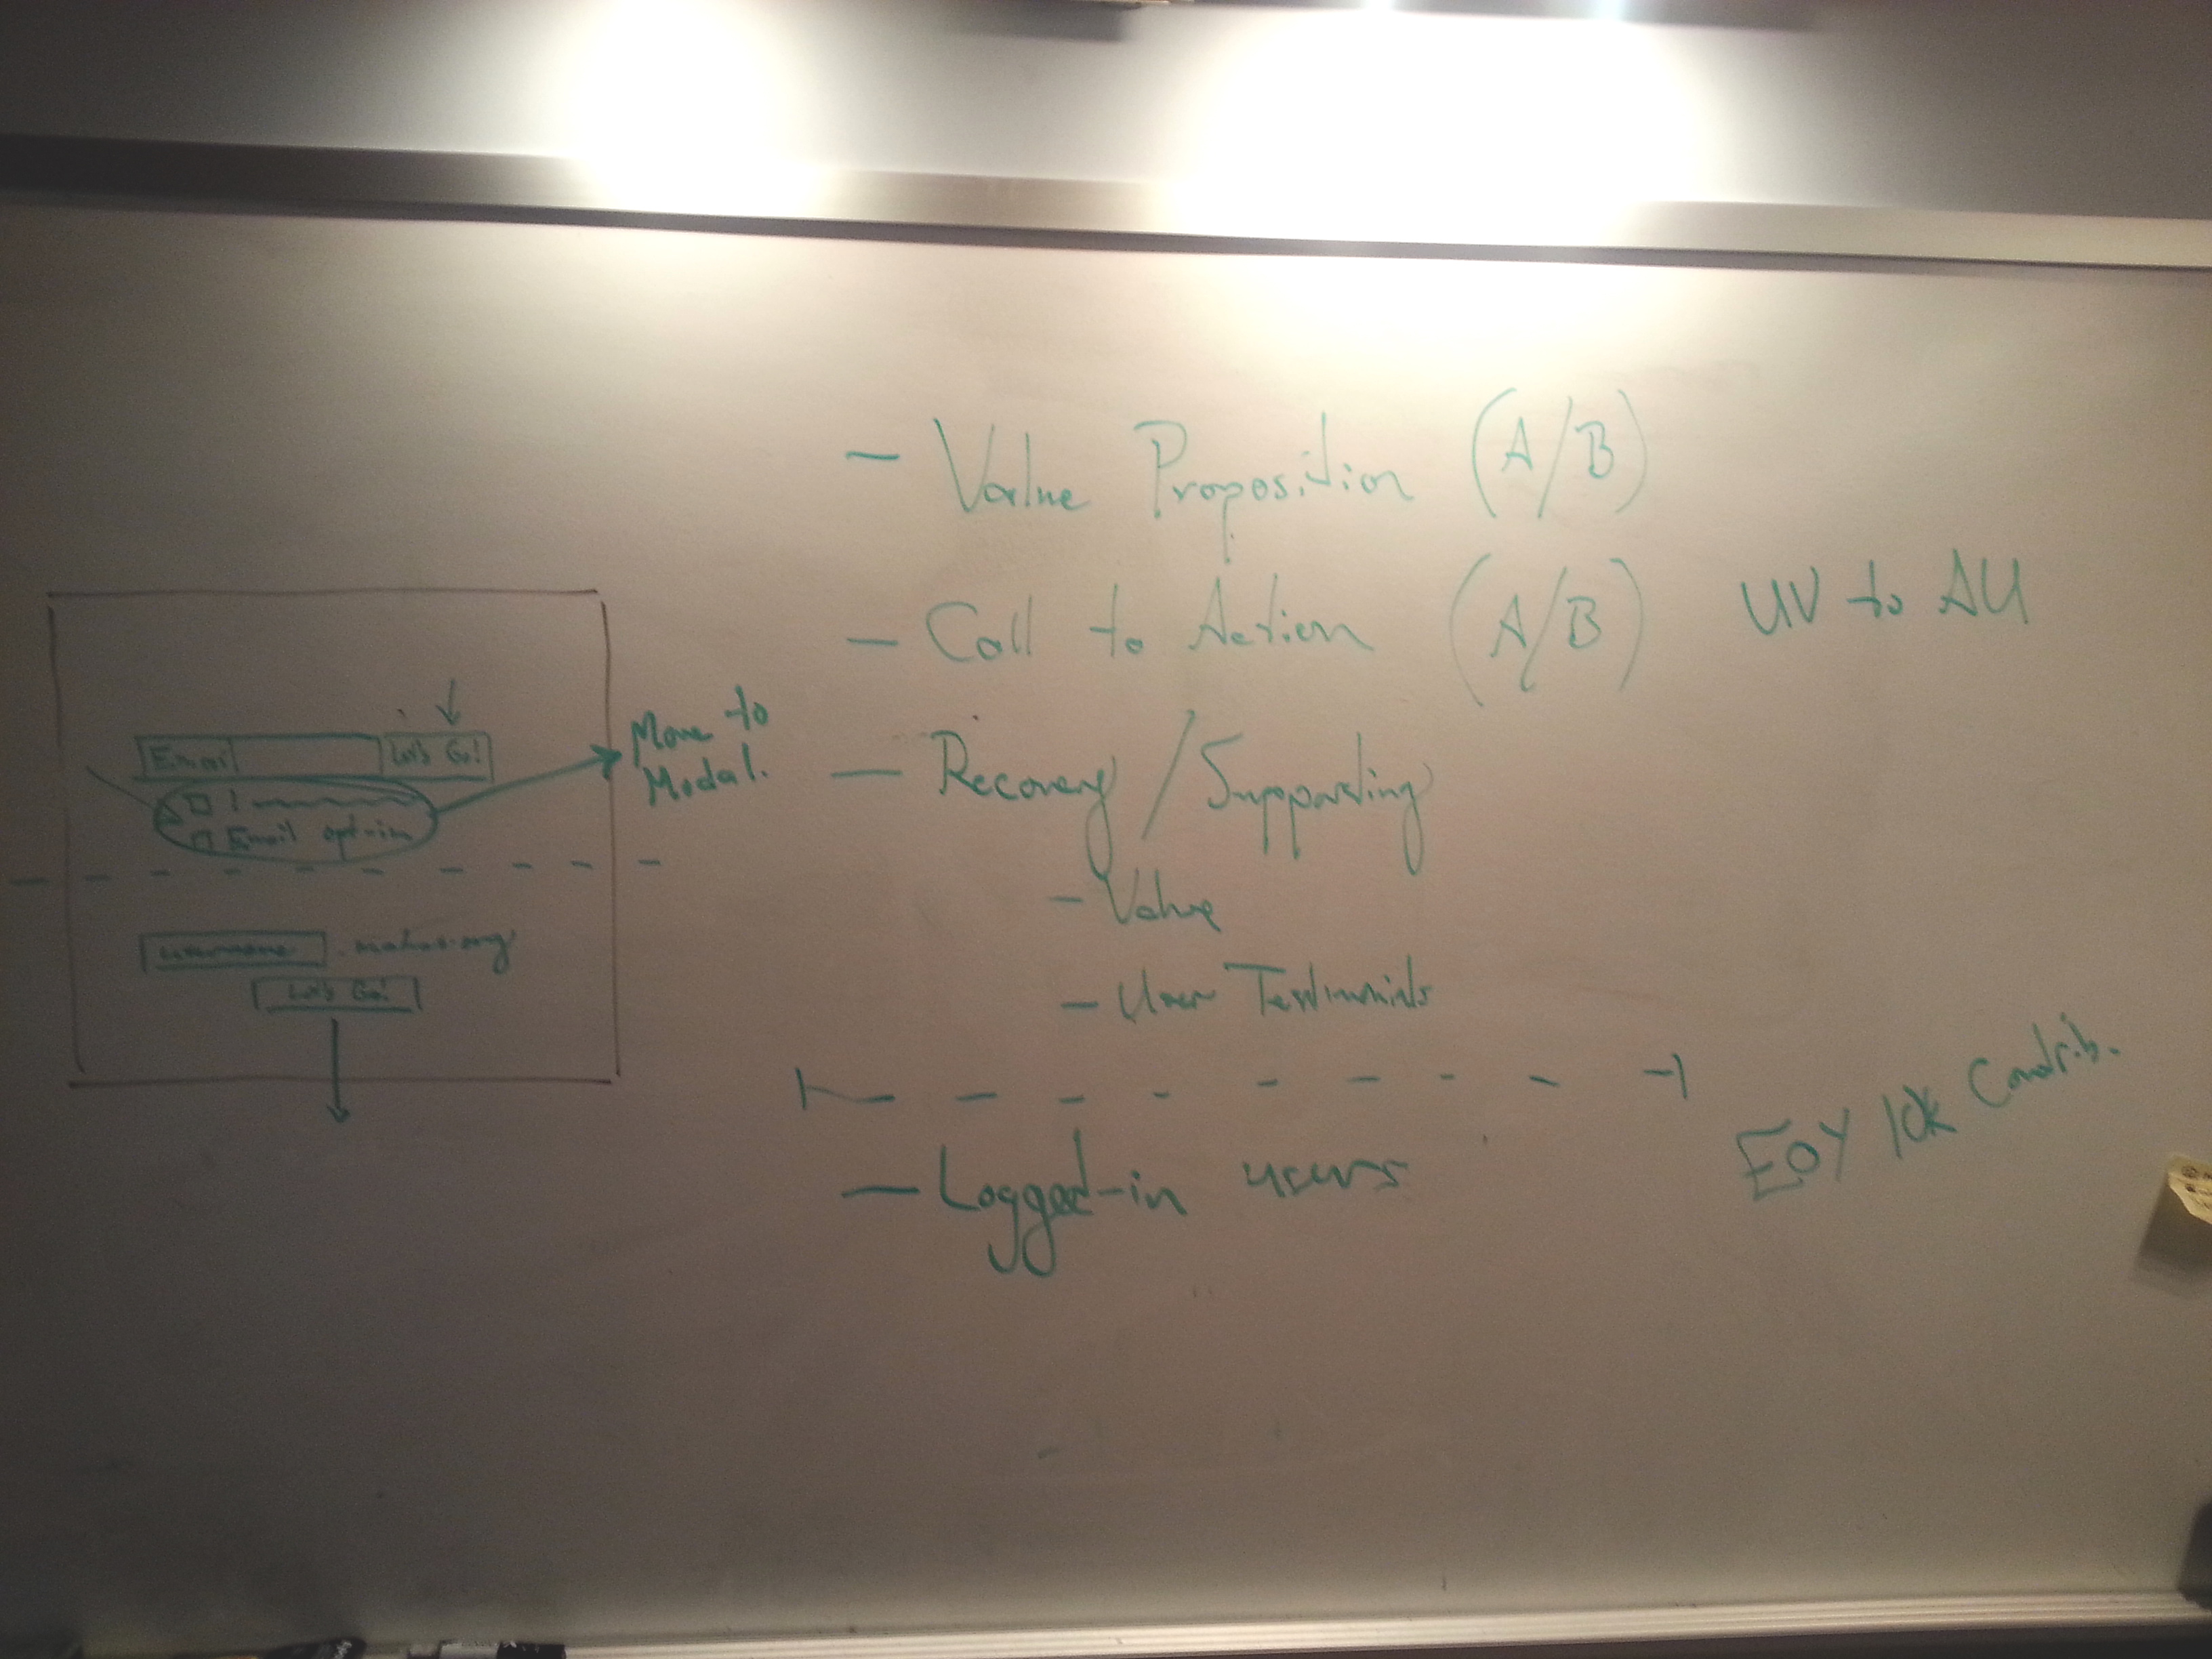 — Value Proposition (A/B)
— Call to Action (A/B) UV to AU
— Recovery / Supporting
— Value
— User Testimonials
— Logged-in users
EOY 10K Contrib.
Email Let's Go!
Email opt-in
Move to
Modal.
username .makes.org
Let's Go!